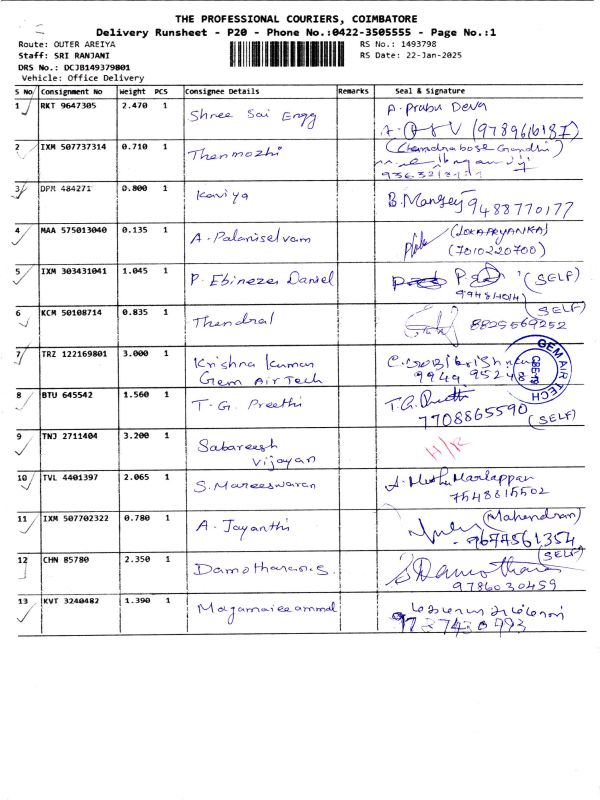 THE PROFESSIONAL COURIERS, COIMBATORE
Delivery Runsheet - P20 - Phone No.:0422-3505555 - Page No.:1
Route: OUTER AREIYA
RS No.: 1493798
Staff: SRI RANJANI
RS Date: 22-Jan-2025
DRS No.: DCJB149379801
Vehicle: Office Delivery
S No Consignment No Weight PCS Consignee Details Remarks Seal & Signature
1 RKT 9647305 2.470 1 Shree Sai Engg A. Prabu Deva
2 IXM 507737314 0.710 1 Thenmozhi (Chandrabose Gandhi)
3 DPM 484271 0.800 1 Kaviya B. 9488770177
4 MAA 575013040 0.135 1 A. Palaniselvam
(7010220700)
5 IXM 303431041 1.045 1 P. Ebinezer Daniel (SELF)
6 KCM 50108714 0.835 1 Thendral (SELF)
8825569252
7 TRZ 122169801 3.000 1 Krishna Kumar
Gem AirTech
GEM AIR TECH
8 BTU 645542 1.560 1 T. G. Preethi T.G. Preethi
7708865590 (SELF)
9 TNJ 2711404 3.200 1 Sabareesh
Vijayan
10 TVL 4401397 2.065 1 S. Mareeswaran
7548815502
11 IXM 507702322 0.780 1 A. Jayanthi (Mahendran)
9677561354
12 CHN 85780 2.350 1 Damotharan.S. (SELF)
9786030459
13 KVT 3240482 1.390 1
9737430993